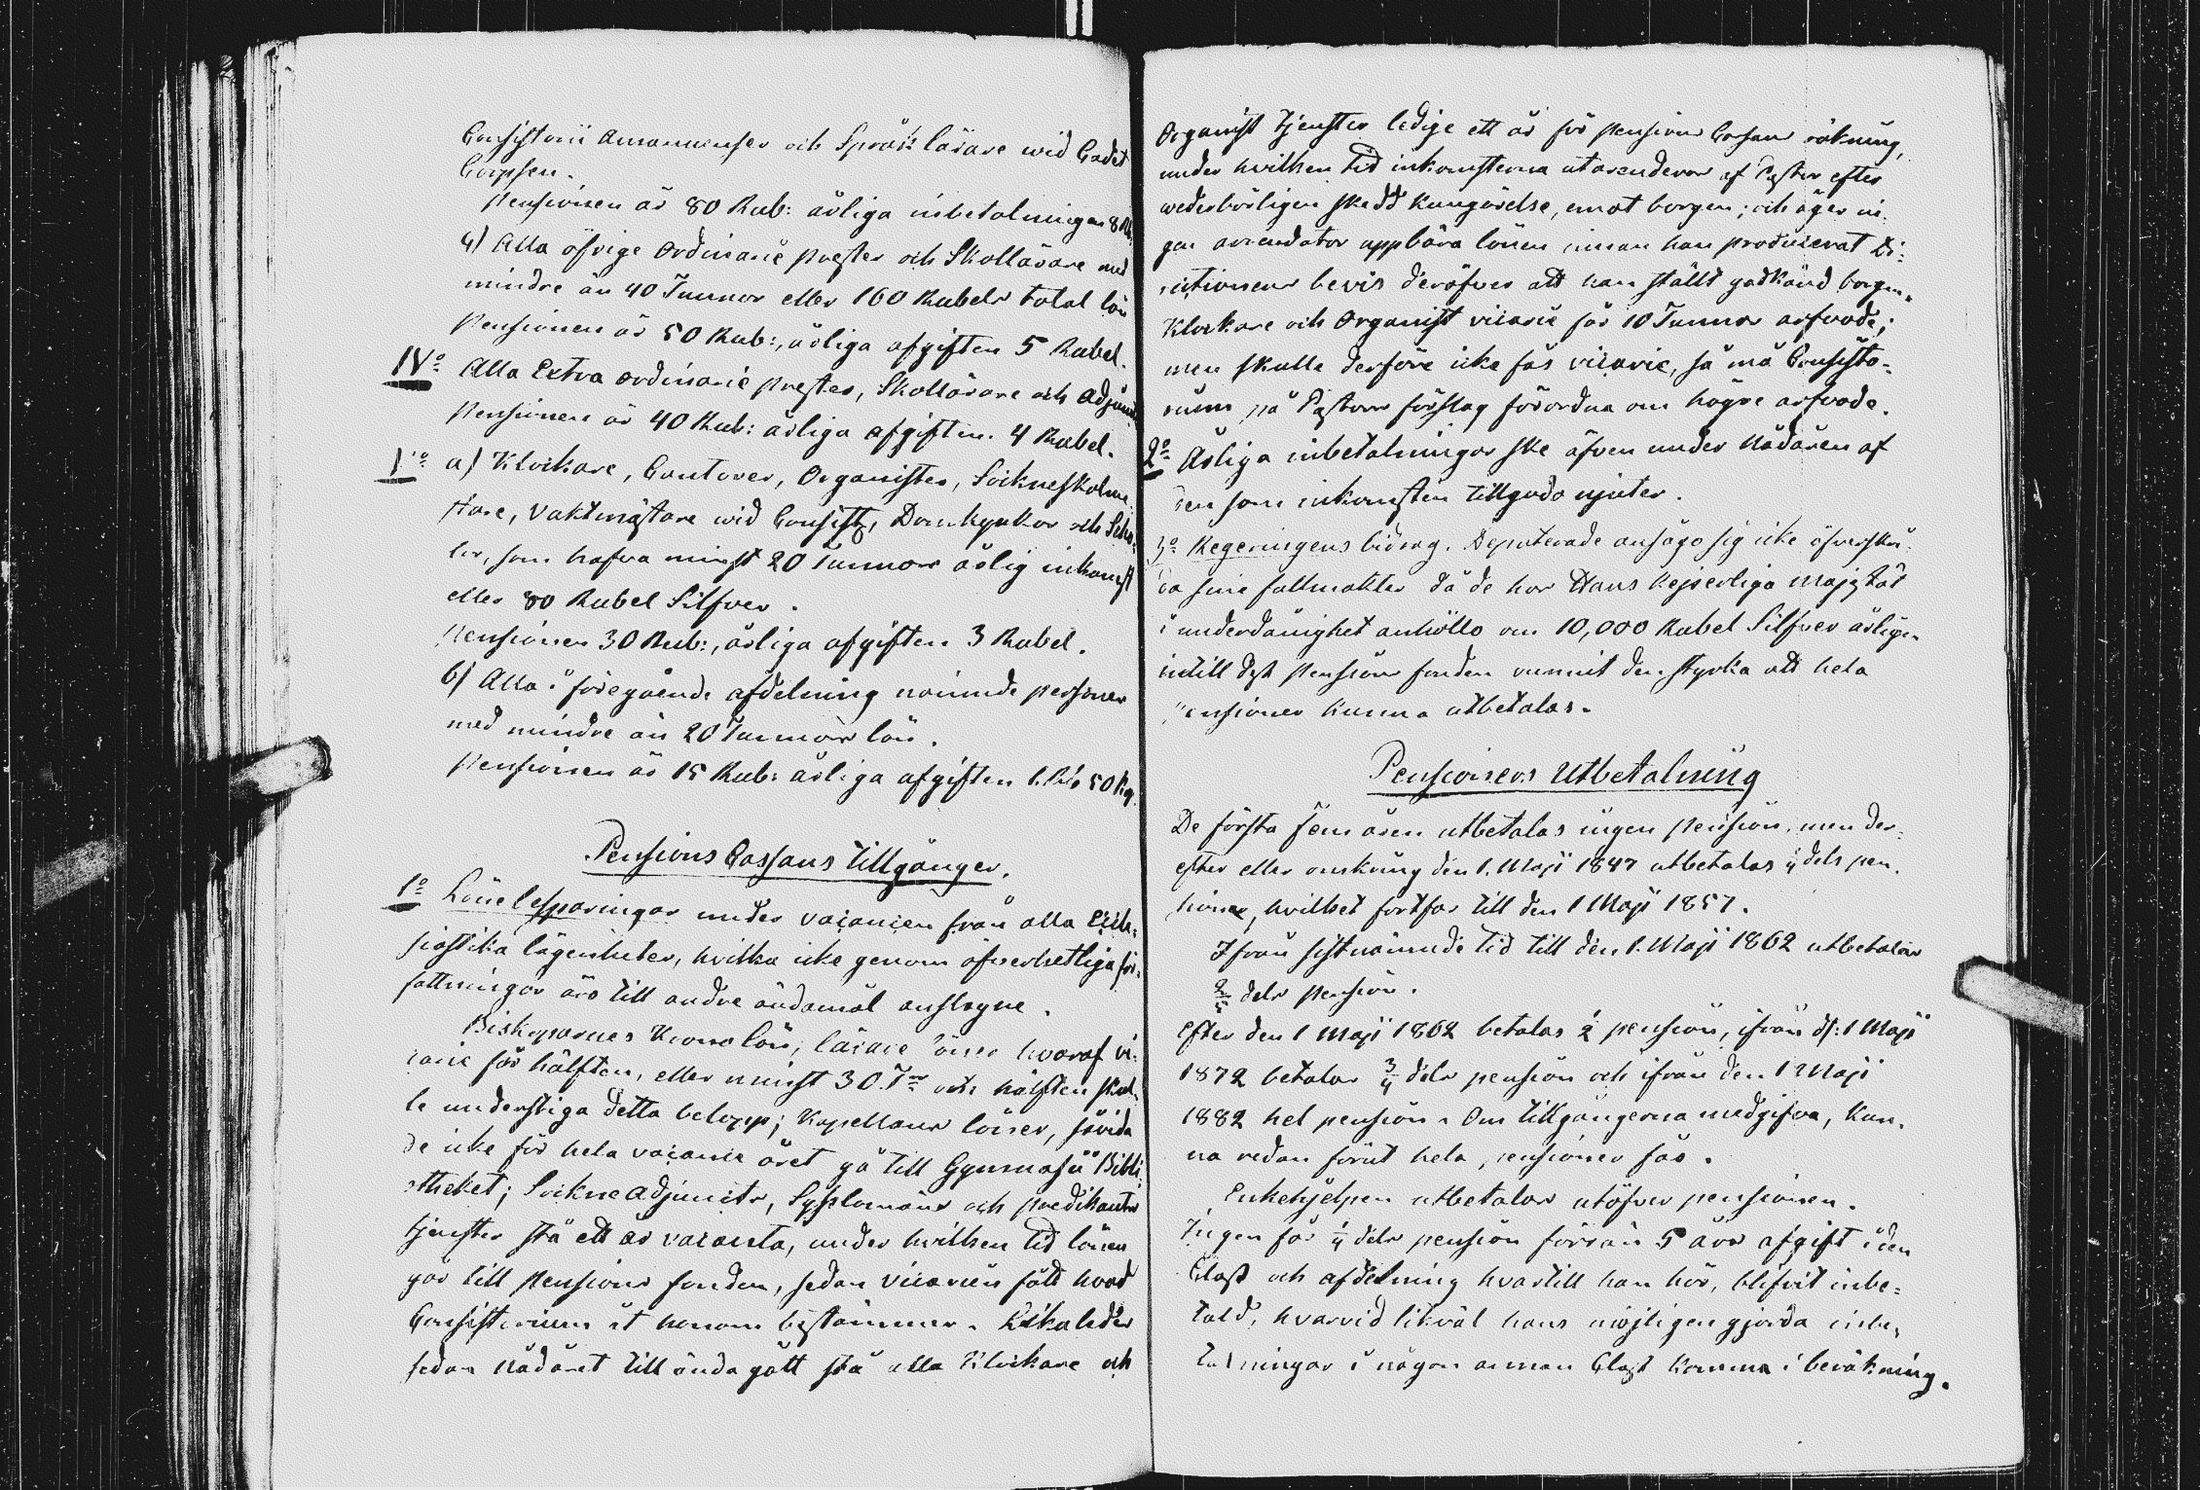 Consistorii Amanuenser och Språklärare wid Cadet
Corpsen.
Pensionen är 80 Rub: årliga inbetalningen 8 Rb.
4) Alla öfrige Ordinarie prester och Skollärare med
mindre än 40 Tunnor eller 160 Rubels total lön
Pensionen är 50 Rub:, årliga afgiften 5 Rubel.
IVº Alla Extra ordinarie prester, Skollärare och Adjunk
Pensionen är 40 Rub: årliga afgiften 4 Rubel.
Vº a) Klockare, Cantorer, Organister, Sockneskolmä
stare, Vaktmästare wid Consist, Domkyrkor och Scho:
lor, som hafva minst 20 Tunnors årlig inkomst
eller 80 Rubel Silfver.
Pensionen 30 Rub:, årliga afgiften 3 Rubel.
b) Alla i föregående afdelning nämnde personer
med mindre än 20 Tunnors lön.
Pensionen är 15 Rub: årliga afgiften 1. Rb. 50 Kp.
Pensions Cassans Tillgånger.
1º Lönebesparingar under vacancen från alla Eccle:
siastika lägenheter, hvilka icke genom öfverhetliga för:
fattningar äro till andre ändamål anslagne.
Biskoparnes Krono lön, lärare löner hvaraf vi:
carie får hälften, eller minst 30 Tr och hälften skul:
le understiga detta belopp; Kapellans löner, såvida
de icke för hela vacance året gå till Gymnasii Bibli
otheket; Sockne Adjuncts, Sysslomäns och predikants
tjenster stå ett år vacanta, under hvilken tid lönen
går till Pensions fonden, sedan vicarien fått hvad
Consistorium åt honom bestämmer. Likaledes
sedan Nådåret till ända gått stå alla Klockare och
Organist tjenster ledige ett år för pensions Cassans räkning,
under hvilken tid inkomsterna utarenderas af Pastor efter
wederbörligen skedd kungörelse, emot borgen; och äger in:
gen arrendator uppbära lönen innan han producerat Di:
rectionens bevis deröfver att han ställt godkänd borgen.
Klockare och Organist vicarie får 10 Tunnor arfvode;
men skulle derföre icke fås vicarie, så må Consisto:
rium, på Pastors förslag förordna om högre arfvode.
2º Årliga inbetalningar ske äfven under Nådåren af
den som inkomsten tillgodo njuter.
3º Regeringens bidrag. Deputerade ansågo sig icke öfverskri:
da sine fullmakter då de hos Hans Kejserliga Majestät
i underdånighet anhöllo om 10,000 Rubel Silfver årligen
intill dess Pensions fonden vunnit den styrka att hela
Pensioner kunna utbetalas.
Pensioners Utbetalning
De första fem åren utbetalas ingen Pension, men der:
efter eller omkring den 1. Maji 1847 utbetalas 1/4 dels pen:
sioner, hvilket fortfar till den 1 Maji 1857.
Ifrån sistnämnde tid till den 1. Maji 1862 utbetalas
2/5 dels Pension.
Efter den 1 Maji 1862 betalas 1/2 pension, ifrån d: 1 Maji
1872 betalas 3/4 dels pension och ifrån den 1 Maji
1882 hel pension. Om tillgångarna medgifva, kun:
na redan förut hela pensioner fås.
Enkehjelpen utbetalas utöfver pensionen.
Ingen får 1/4 dels pension förrän 5 års afgift i den
Class och afdelning hvartill han hör, blifvit inbe:
tald, hvarvid likväl hans möjligen gjorda inbe:
talningar i någon annan Class komma i beräkning.